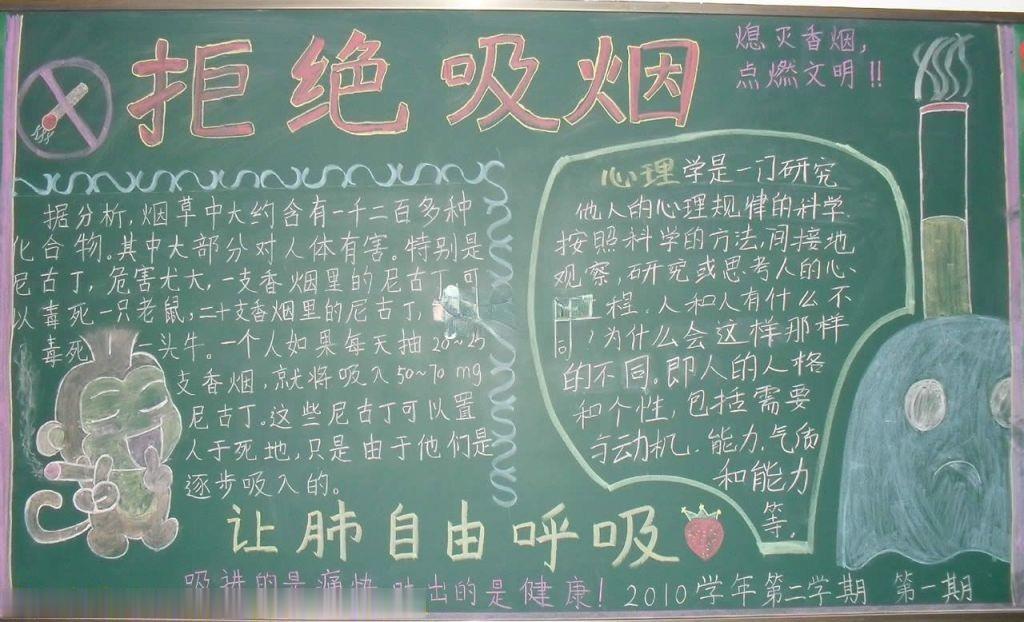 拒绝吸烟
熄灭香烟，
点燃文明！！
据分析，烟草中大约含有一千二百多种
化合物。其中大部分对人体有害。特别是
尼古丁，危害尤大，一支香烟里的尼古丁可
以毒死一只老鼠，二十支香烟里的尼古丁，
毒死一头牛。一个人如果每天抽20~25
支香烟，就将吸入50~70 mg
尼古丁。这些尼古丁可以置
人于死地，只是由于他们是
逐步吸入的。
心理学是一门研究
他人的心理规律的科学.
按照科学的方法，间接地
观察，研究或思考人的心
程。人和人有什么不
同，为什么会这样那样
的不同。即人的人格
和个性，包括需要
与动机．能力．气质
和能力
等。
让肺自由呼吸
吸进的是痛快 吐出的是健康！
2010学年第二学期 第一期